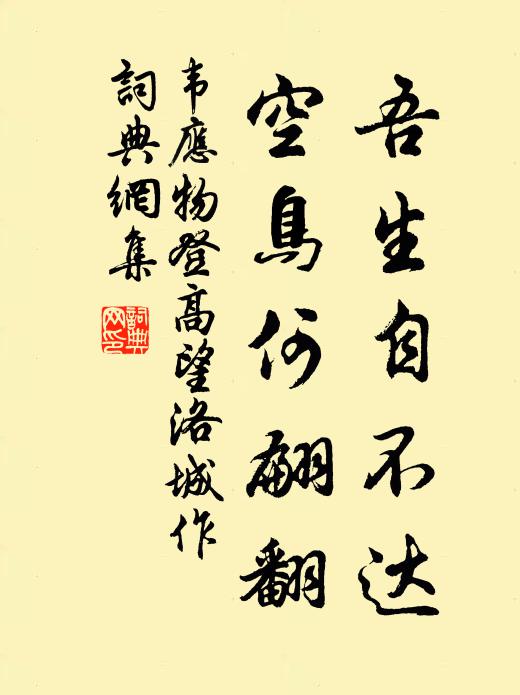 吾生自不达
空鳥何翩翻
韦應物登高望洛城作
詞典網集
詞典网印